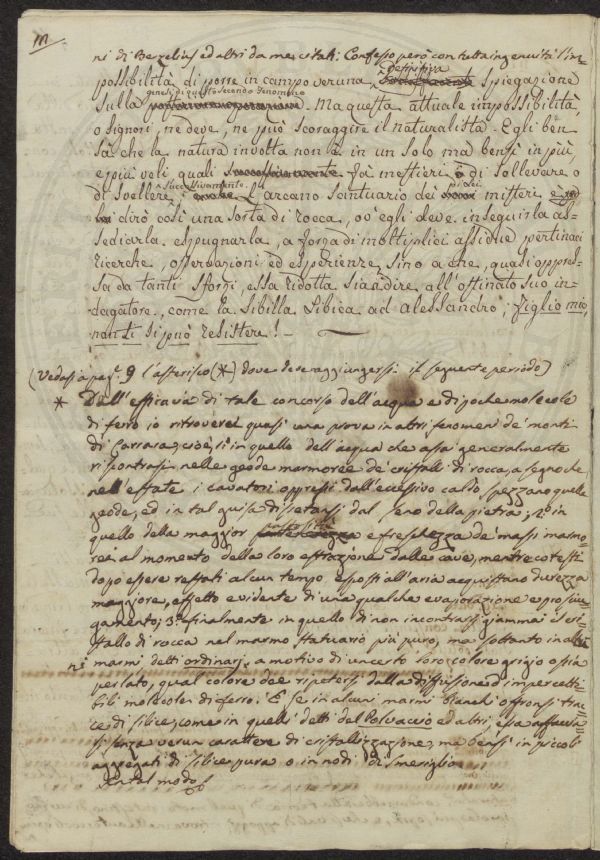 ni di Berzelius ed altri da me citati: Confesso però con tutta ingenuità l'im-
possibilità di porre in campo veruna definitiva spiegazione
sulla genesi di questo secondo fenomeno. Ma questa attuale impossibilità,
o signori, ne deve, ne può scoraggire il naturalista. Egli ben
sà che la natura involta non è in un solo ma bensì in più
e più veli quali fà mestieri di sollevare o
di svellere successivamente. L'arcano santuario dei misteri
dirò così una sorta di rocca, ov'egli deve inseguirla as-
sediarla espugnarla, a forza di moltiplici assidue pertinaci
ricerche, osservazioni ed esperienze, sino a che, quasi oppres-
sa da tanti sforzi, essa ridotta sia a dire all'ostinato suo in-
dagatore, come la Sibilla Libica ad Alessandro; figlio mio,
non ti si può resistere! —
(Vedasi a pag. 9 l'asterisco (*) dove deve aggiungersi il seguente periodo)
* Dall'efficacia di tale concorso dell'acqua e di poche molecole
di ferro io ritroverei quasi una prova in altri fenomeni de' monti
di Carrara, cioè, 1: in quello dell'acqua che assai generalmente
riscontrasi nelle geode marmoree de' cristalli di rocca, a segno che
nell'estate i cavatori oppressi dall'eccessivo caldo spezzano quelle
geode, ed in tal guisa dissetansi dal seno della pietra; 2: in
quello della maggior pastosità e freschezza de' massi marmo-
rei al momento della loro estrazione dalle cave, mentre cotesti
dopo essere restati alcun tempo esposti all'aria acquistano durezza
maggiore, effetto evidente di una qualche evaporazione e prosciu-
gamento; 3: finalmente in quello di non incontrarsi giammai il cri-
stallo di rocca nel marmo statuario più puro, ma soltanto in altri
marmi detti ordinarj, a motivo di un certo loro colore grigio o sia
perlato, qual colore dee ripetersi dalla diffusione d'impercetti-
bili molecole di ferro. E se in alcuni marmi bianchi offronsi trac-
ce di silice, come in quelli detti del Polvaccio ed altri,
senza verun carattere di cristallizzazione, ma bensì in piccoli
aggregati di silice pura o in nodi di smeriglio
In tal modo